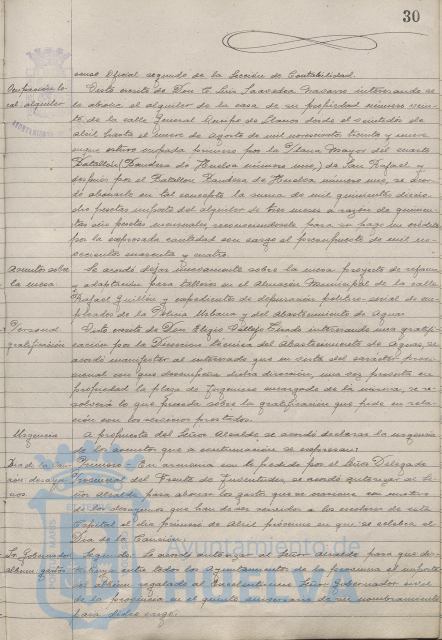 30
censo Oficial segundo de la Sección de Contabilidad.
Ocupación lo- Visto escrito de Don Luis Saavedra Navarro interesando se
cal alquiler le abone el alquiler de la casa de su propiedad número vein-
te de la calle General Queipo de Llano desde el veintidós de
abril hasta el nueve de Agosto de mil novecientos treinta y nueve
que estuvo ocupada primero por la Plana Mayor del cuarto
Batallón (Bandera de Huelva número uno) de San Rafael y
después por el Batallón Bandera de Huelva número uno, se acor-
dó abonarle en tal concepto la suma de mil quinientas diecio-
cho pesetas importe del alquiler de tres meses a razón de quinien-
tas seis pesetas mensuales, reconociéndosele para su pago un crédito
por la expresada cantidad con cargo al presupuesto de mil no-
vecientos cuarenta y cuatro.
Asuntos sobre Se acordó dejar nuevamente sobre la mesa proyecto de reforma
la mesa y adaptación para talleres en el Almacén Municipal de la calle
Rafael Guillén y expedientes de depuración político-social de em-
pleados de la Policía Urbana y del Abastecimiento de Aguas
Personal Visto escrito de Don Eligio interesando una gratifi-
gratificación cación por la Dirección técnica del Abastecimiento de Aguas, se
acordó manifestar al interesado que en vista del carácter provi-
sional con que desempeña dicha dirección, una vez provista en
propiedad la plaza de Ingeniero encargado de la misma, se re-
solverá lo que proceda sobre la gratificación que pide en rela-
ción con los servicios prestados.
Urgencia A propuesta del Señor Alcalde, se acordó declarar la urgencia
de los asuntos que a continuación se expresan:
Día de la Can- Primero. En armonía con lo pedido por el Señor Delegado
ción desayu- Provincial del Frente de Juventudes, se acordó autorizar al Se-
nos ñor Alcalde para abonar los gastos que se ocasionen con motivo
de los desayunos que han de ser servidos a los escolares de esta
Capital el día primero de Abril próximo en que se celebra el
Día de la Canción.
Sr. Gobernador Segundo. Se acordó autorizar al Señor Alcalde para que
álbum gastos entre todos los Ayuntamientos de la provincia el importe
del álbum regalado al Excelentísimo Señor Gobernador civil
de la provincia en el quinto aniversario de su nombramiento
para dicho cargo.
Ayuntamiento de
HUELVA